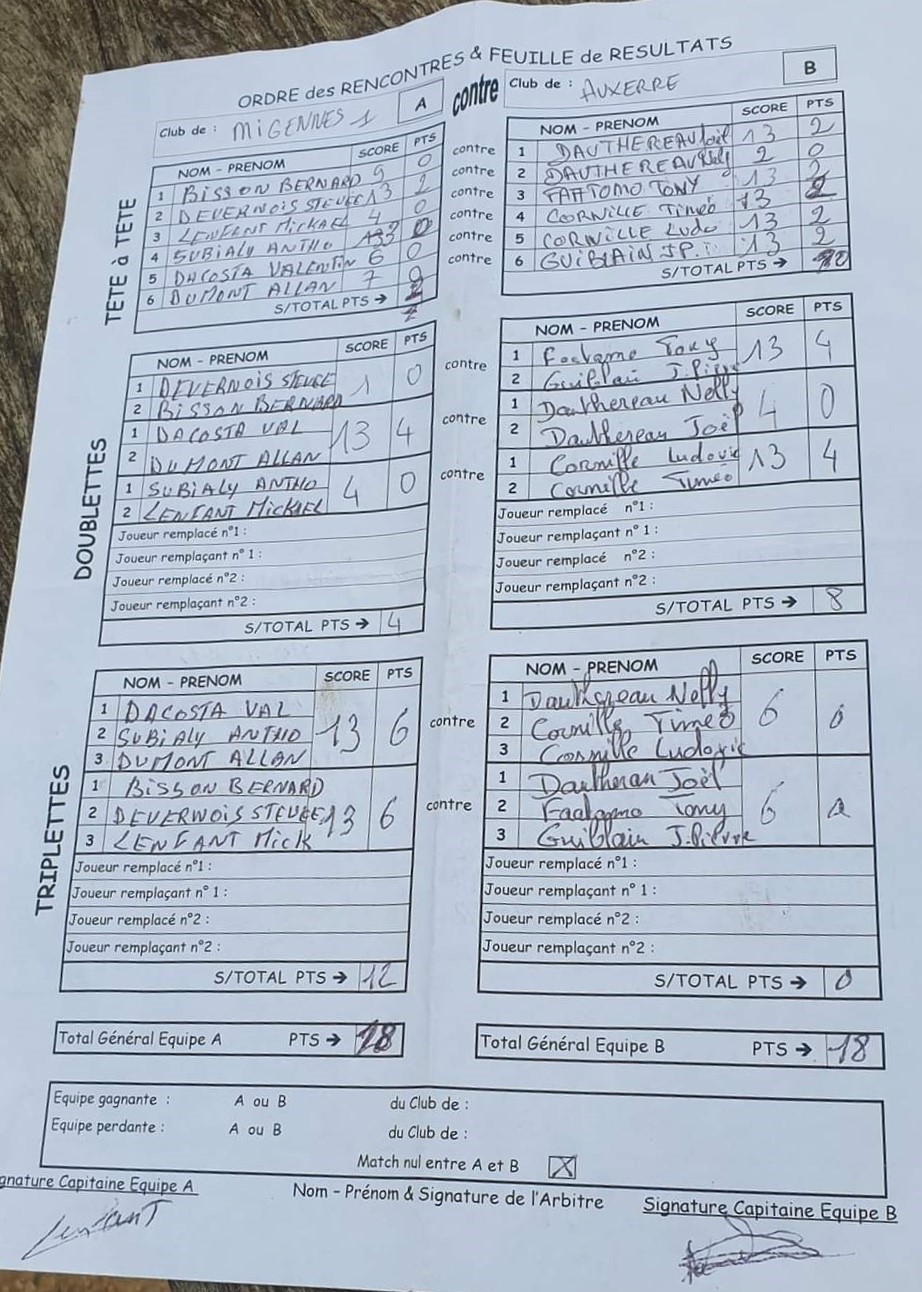 ORDRE des RENCONTRES & FEUILLE de RESULTATS
Club de : MIGENNES 1 A contre Club de : AUXERRE B
TÊTE à TÊTE
NOM - PRENOM SCORE PTS
1 BISSON BERNARD 9 0
2 DEVERNOIS STEVEE 13 2
3 LENFANT MICKAEL 4 0
4 SUBIALY ANTHO 0
5 DACOSTA VALENTIN 6 0
6 DUMONT ALLAN 7 0
S/TOTAL PTS → 2
contre
contre
contre
contre
contre
contre
NOM - PRENOM SCORE PTS
1 DAUTHEREAU Joël 13 2
2 DAUTHEREAU Nelly 2 0
3 TONY 13 2
4 CORNILLE Timéo 13 2
5 CORNILLE Ludo 13 2
6 GUIBLAIN J.P. 13 2
S/TOTAL PTS → 10
DOUBLETTES
NOM - PRENOM SCORE PTS
1 DEVERNOIS STEVEE 1 0
2 BISSON BERNARD
1 DACOSTA VAL 13 4
2 DUMONT ALLAN
1 SUBIALY ANTHO 4 0
2 LENFANT MICKAEL
Joueur remplacé n°1 :
Joueur remplaçant n° 1 :
Joueur remplacé n°2 :
Joueur remplaçant n°2 :
S/TOTAL PTS → 4
contre
contre
contre
NOM - PRENOM SCORE PTS
1 Tony 13 4
2 Guiblain J.Pierre
1 Dauthereau Nelly 4 0
2 Dauthereau Joël
1 Cornille Ludovic 13 4
2 Cornille Timéo
Joueur remplacé n°1 :
Joueur remplaçant n° 1 :
Joueur remplacé n°2 :
Joueur remplaçant n°2 :
S/TOTAL PTS → 8
TRIPLETTES
NOM - PRENOM SCORE PTS
1 DACOSTA VAL 13 6
2 SUBIALY ANTHO
3 DUMONT ALLAN
1 BISSON BERNARD 13 6
2 DEVERNOIS STEVEE
3 LENFANT MICK
Joueur remplacé n°1 :
Joueur remplaçant n° 1 :
Joueur remplacé n°2 :
Joueur remplaçant n°2 :
S/TOTAL PTS → 12
contre
contre
NOM - PRENOM SCORE PTS
1 Dauthereau Nelly 6 0
2 Cornille Timéo
3 Cornille Ludovic
1 Dautheran Joël 6 0
2 Tony
3 Guiblain J.Pierre
Joueur remplacé n°1 :
Joueur remplaçant n° 1 :
Joueur remplacé n°2 :
Joueur remplaçant n°2 :
S/TOTAL PTS → 0
Total Général Equipe A PTS → 18
Total Général Equipe B PTS → 18
Equipe gagnante : A ou B du Club de :
Equipe perdante : A ou B du Club de :
Match nul entre A et B X
gnature Capitaine Equipe A
Nom - Prénom & Signature de l'Arbitre
Signature Capitaine Equipe B
Lenfant